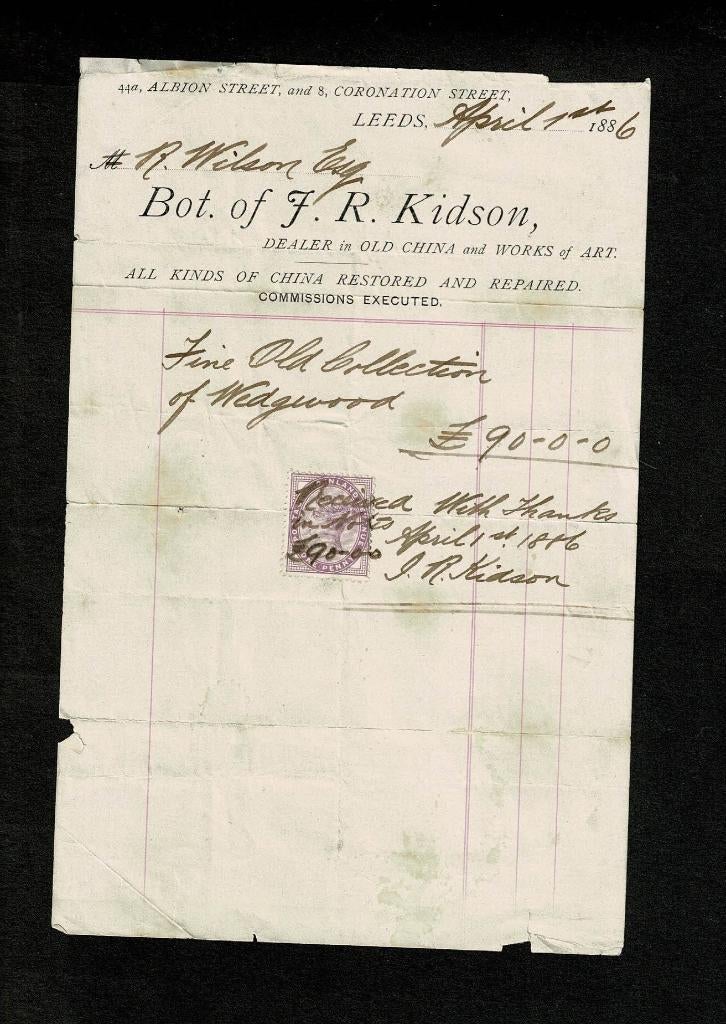 44a, ALBION STREET, and 8, CORONATION STREET,
LEEDS, April 1st 1886
M R. Wilson Esq
Bot. of J. R. Kidson,
DEALER in OLD CHINA and WORKS of ART.
ALL KINDS OF CHINA RESTORED AND REPAIRED.
COMMISSIONS EXECUTED.
Fine Old Collection
of Wedgwood
£90-0-0
Received With Thanks
in Notes April 1st. 1886
£90-0-0
J. R. Kidson
INLAND REVENUE
ONE PENNY